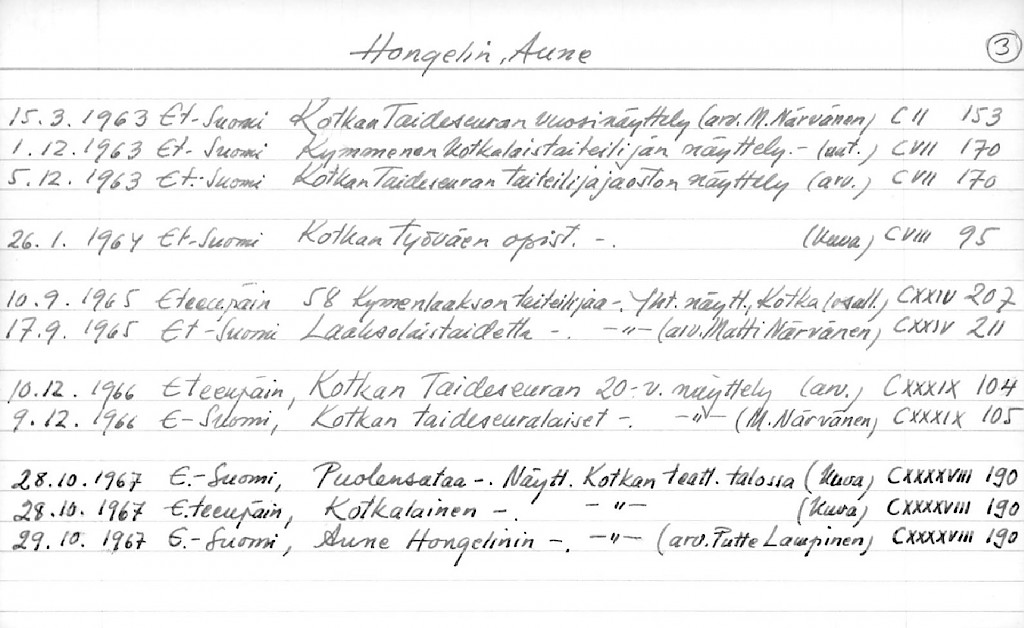 Hongelin, Aune 3
15.3.1963 Et-Suomi Kotkan Taideseuran vuosinäyttely (arv. M. Närvänen) C II 153
1.12.1963 Et-Suomi Kymmenen kotkalaistaiteilijan näyttely.- (uut.) CVII 170
5.12.1963 Et.-Suomi Kotkan Taideseuran taiteilijajaoston näyttely (arv.) CVII 170
26.1.1964 Et-Suomi Kotkan Työväen opist. -. (kuva) CVIII 95
10.9.1965 Eteenpäin 58 Kymenlaakson taiteilijaa-. Yht. näytt., Kotka (osall.) CXXIV 207
17.9.1965 Et-Suomi Laaksolaistaidetta -. -"- (arv. Matti Närvänen) CXXIV 211
10.12.1966 Eteenpäin, Kotkan Taideseuran 20-v. näyttely (arv.) CXXXIX 104
9.12.1966 E-Suomi, Kotkan taideseuralaiset -. -"- (M. Närvänen) CXXXIX 105
28.10.1967 E.-Suomi, Puolensataa -. Näytt. Kotkan teatt. talossa (kuva) CXXXXVIII 190
28.10.1967 Eteenpäin, Kotkalainen -. -"- (kuva) CXXXXVIII 190
29.10.1967 E.-Suomi, Aune Hongelinin -. -"- (arv. Putte Lampinen) CXXXXVIII 190